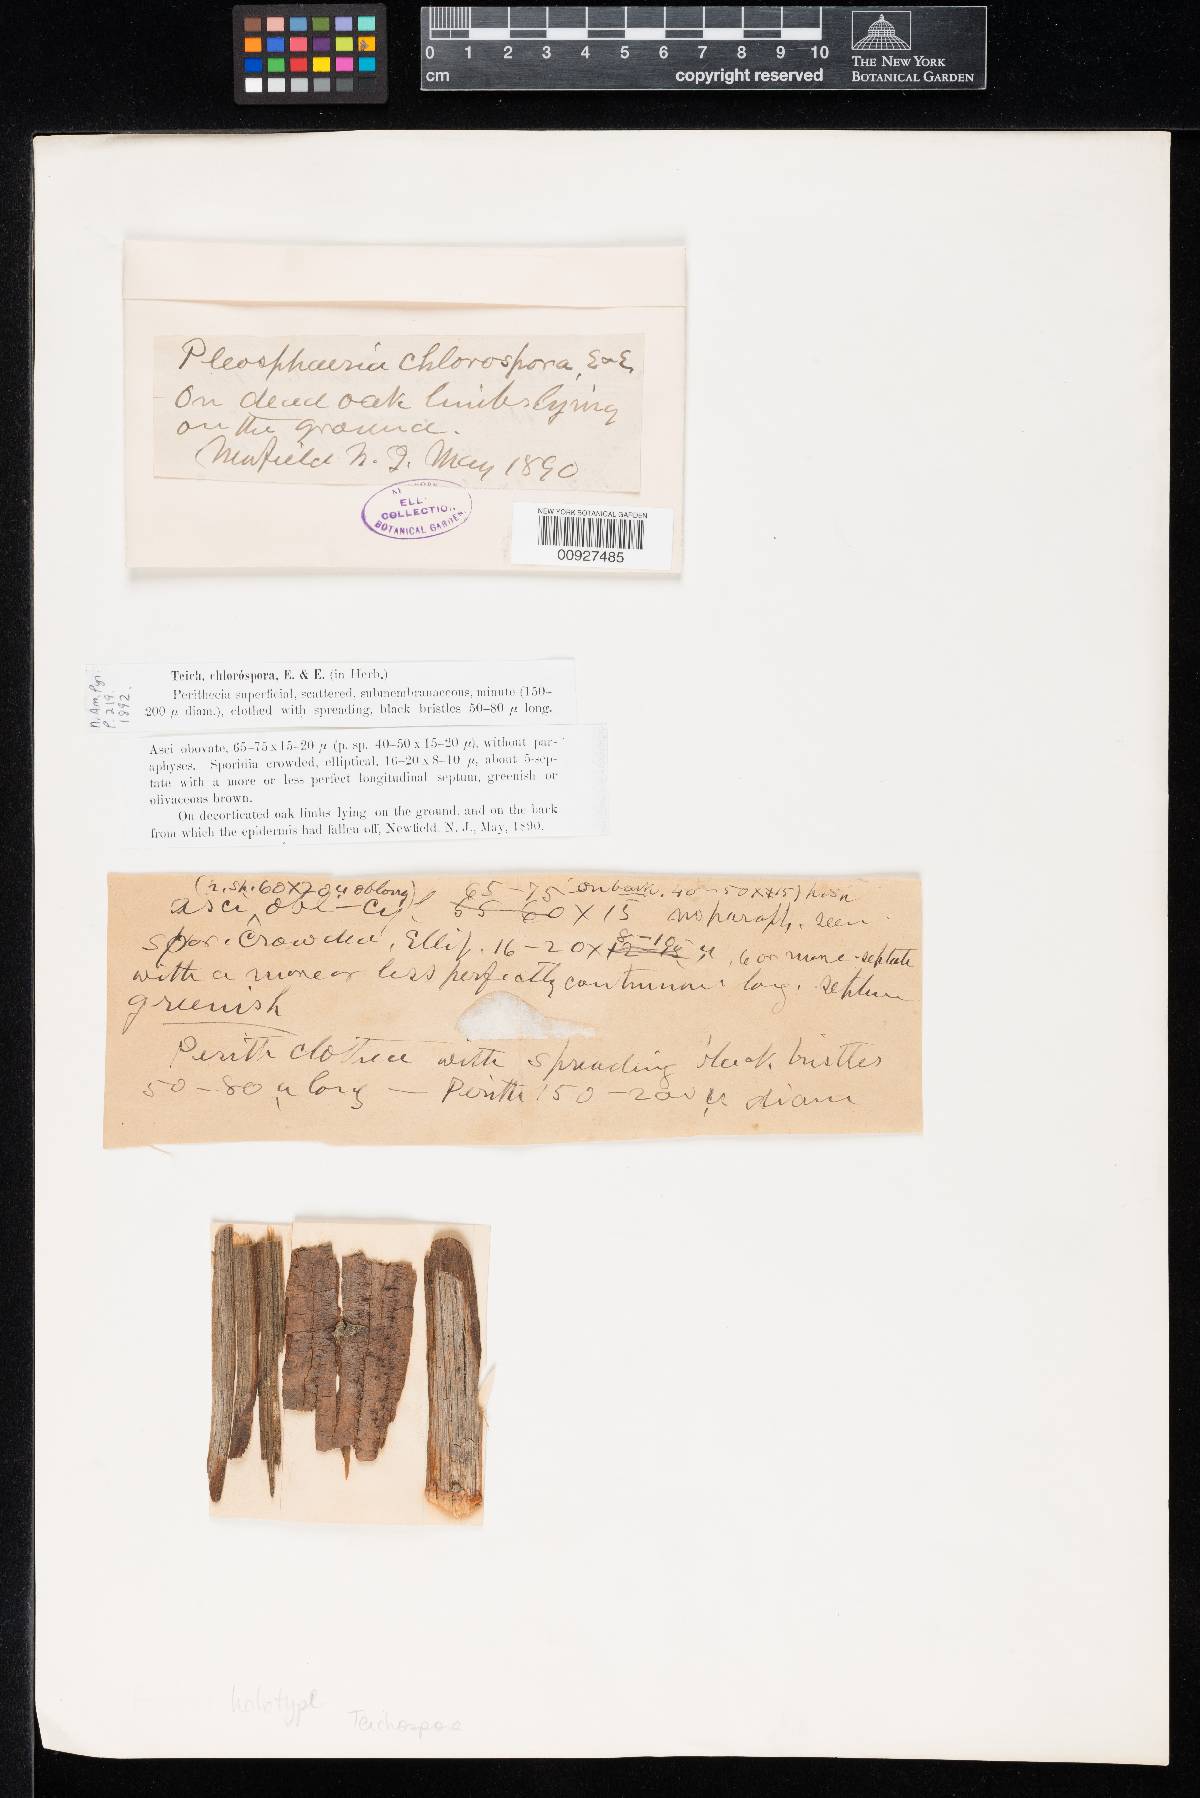 0 1 2 3 4 5 6 7 8 9 10
cm
copyright reserved
THE NEW YORK
BOTANICAL GARDEN
Pleosphaeria chlorospora, E&E,
On dead oak limbs lying
on the ground.
Newfield N. J. May 1890
ELL
COLLECTION
BOTANICAL GARDEN.
NEW YORK BOTANICAL GARDEN
00927485
N.Am.Pyr.
P. 219.
1892.
Teich. chloróspora, E. & E. (in Herb.)
Perithecia superficial, scattered, submembranaceous, minute (150–
200 µ diam.), clothed with spreading, black bristles 50–80 µ long.
Asci obovate, 65–75 x 15–20 µ (p. sp. 40–50 x 15–20 µ), without par-
aphyses. Sporidia crowded, elliptical, 16–20 x 8–10 µ, about 5-sep-
tate with a more or less perfect longitudinal septum, greenish or
olivaceous brown.
On decorticated oak limbs lying on the ground, and on the bark
from which the epidermis had fallen off, Newfield, N. J., May, 1890.
60x20 µ oblong) 65–75 on bark. 40–50
asci, obl–cyl 55 60 x 15 no paraph. seen
spor. Crowded, Ellip. 16–20 x µ, 6 or more-septate
with a more or less perfectly continuous long. septum
greenish
Perith clothed with spreading black bristles
50–80 µ long — Perith 150–200 µ diam
holotype
Teichospora